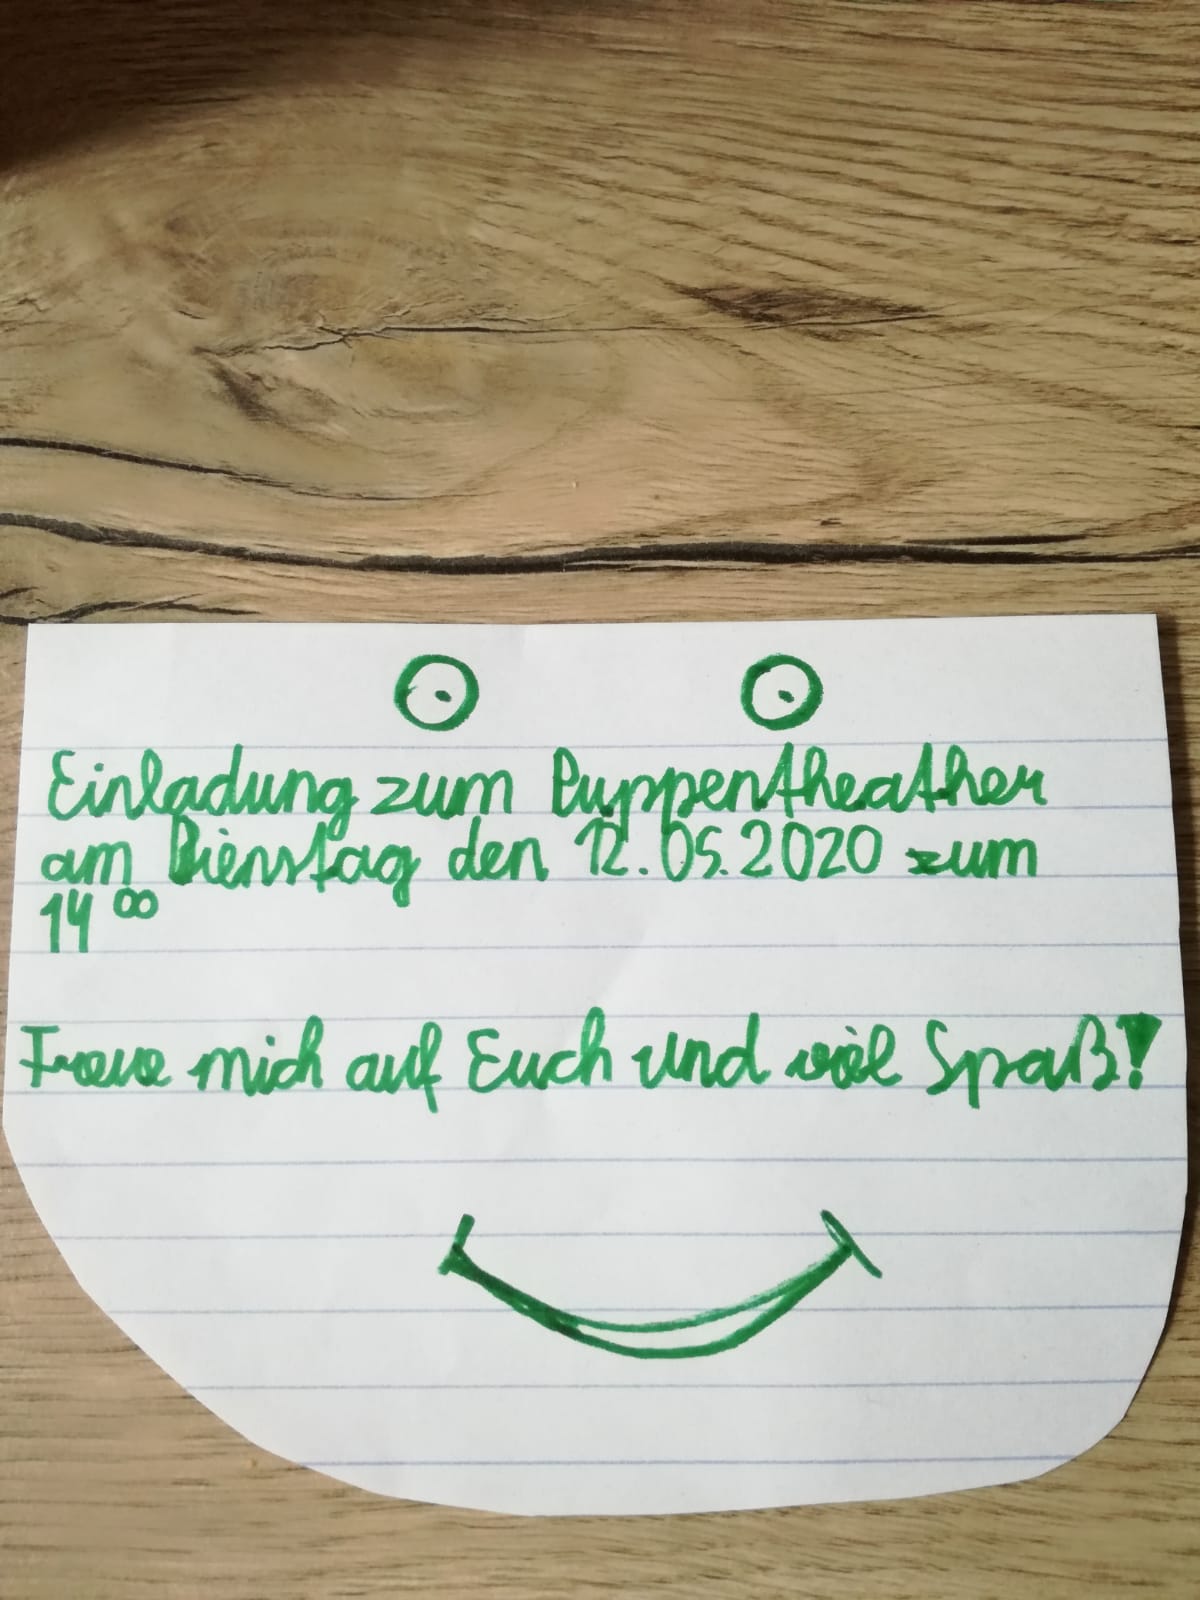 Einladung zum Puppentheather
am Dienstag den 12.05.2020 zum
14⁰⁰
Freue mich auf Euch und viel Spaß!